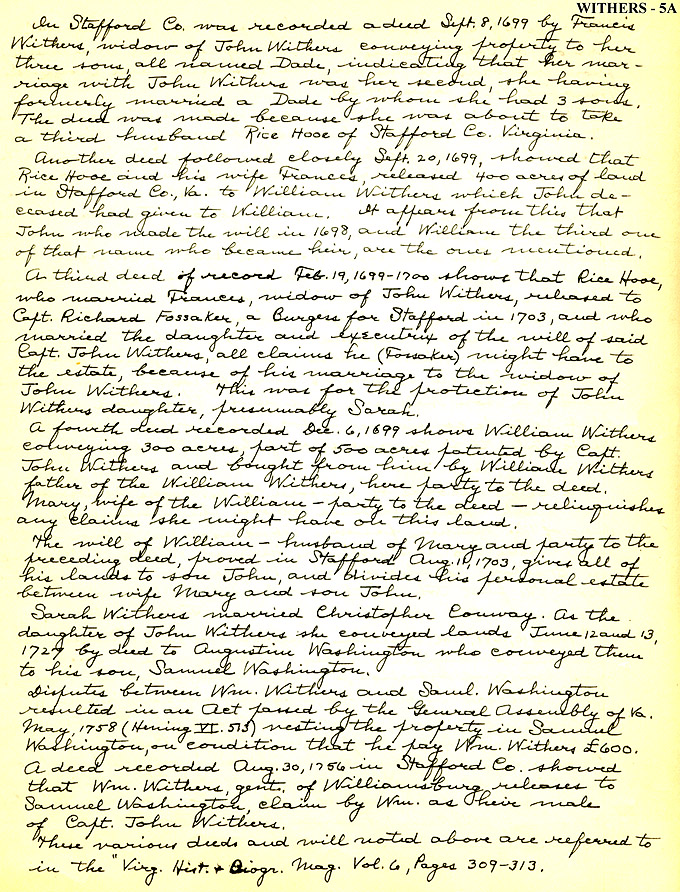 WITHERS - 5A
In Stafford Co. was recorded a deed Sept. 8, 1699 by Francis
Withers, widow of John Withers conveying property to her
three sons, all named Dade, indicating that her mar-
riage with John Withers was her second, she having
formerly married a Dade by whom she had 3 sons.
The deed was made because she was about to take
a third husband Rice Hooe of Stafford Co. Virginia.
Another deed followed closely Sept. 20, 1699, showed that
Rice Hooe and his wife Frances, released 400 acres of land
in Stafford Co., Va. to William Withers which John de-
ceased had given to William. It appears from this that
John who made the will in 1698, and William the third one
of that name who became heir, are the ones mentioned.
A third deed of record Feb. 19, 1699-1700 shows that Rice Hooe,
who married Frances, widow of John Withers, released to
Capt. Richard Fossaker, a Burgess for Stafford in 1703, and who
married the daughter and executrix of the will of said
Capt. John Withers, all claims he (Fossaker) might have to
the estate, because of his marriage to the widow of
John Withers. This was for the protection of John
Withers daughter, presumably Sarah.
A fourth deed recorded Dec. 6, 1699 shows William Withers
conveying 300 acres, part of 500 acres patented by Capt.
John Withers and bought from him by William Withers
father of the William Withers, here party to the deed.
Mary, wife of the William - party to the deed - relinquishes
any claims she might have on this land.
The will of William - husband of Mary and party to the
preceding deed, proved in Stafford Aug. 11, 1703, gives all of
his lands to son John, and divides his personal estate
between wife Mary and son John.
Sarah Withers married Christopher Conway. As the
daughter of John Withers she conveyed lands June 12 and 13,
1727 by deed to Augustin Washington who conveyed them
to his son, Samuel Washington.
Disputes between Wm. Withers and Saml. Washington
resulted in an Act passed by the General Assembly of Va.
May, 1758 (Hening VI. 513) vesting the property in Samuel
Washington, on condition that he pay Wm. Withers £600.
A deed recorded Aug. 30, 1756 in Stafford Co. showed
that Wm. Withers, gent. of Williamsburg releases to
Samuel Washington, claim by Wm. as heir male
of Capt. John Withers.
These various deeds and will noted above are referred to
in the "Virg. Hist. & Biogr. Mag. Vol. 6, Pages 309-313.